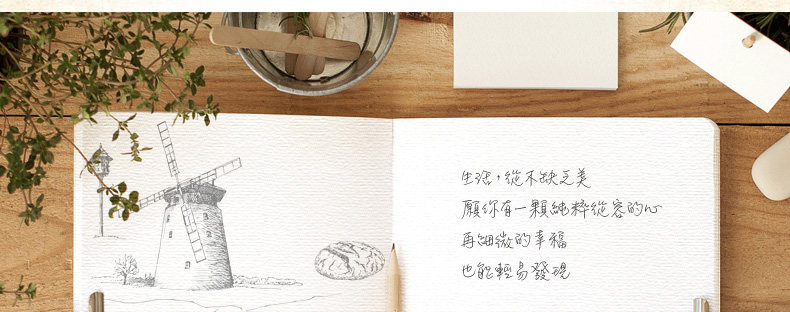 生活，從不缺乏美
願你有一顆純粹從容的心
再細微的幸福
也能輕易發現